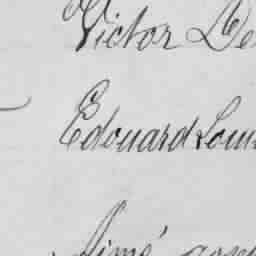 Victor De
Edouard Loui
Aimé